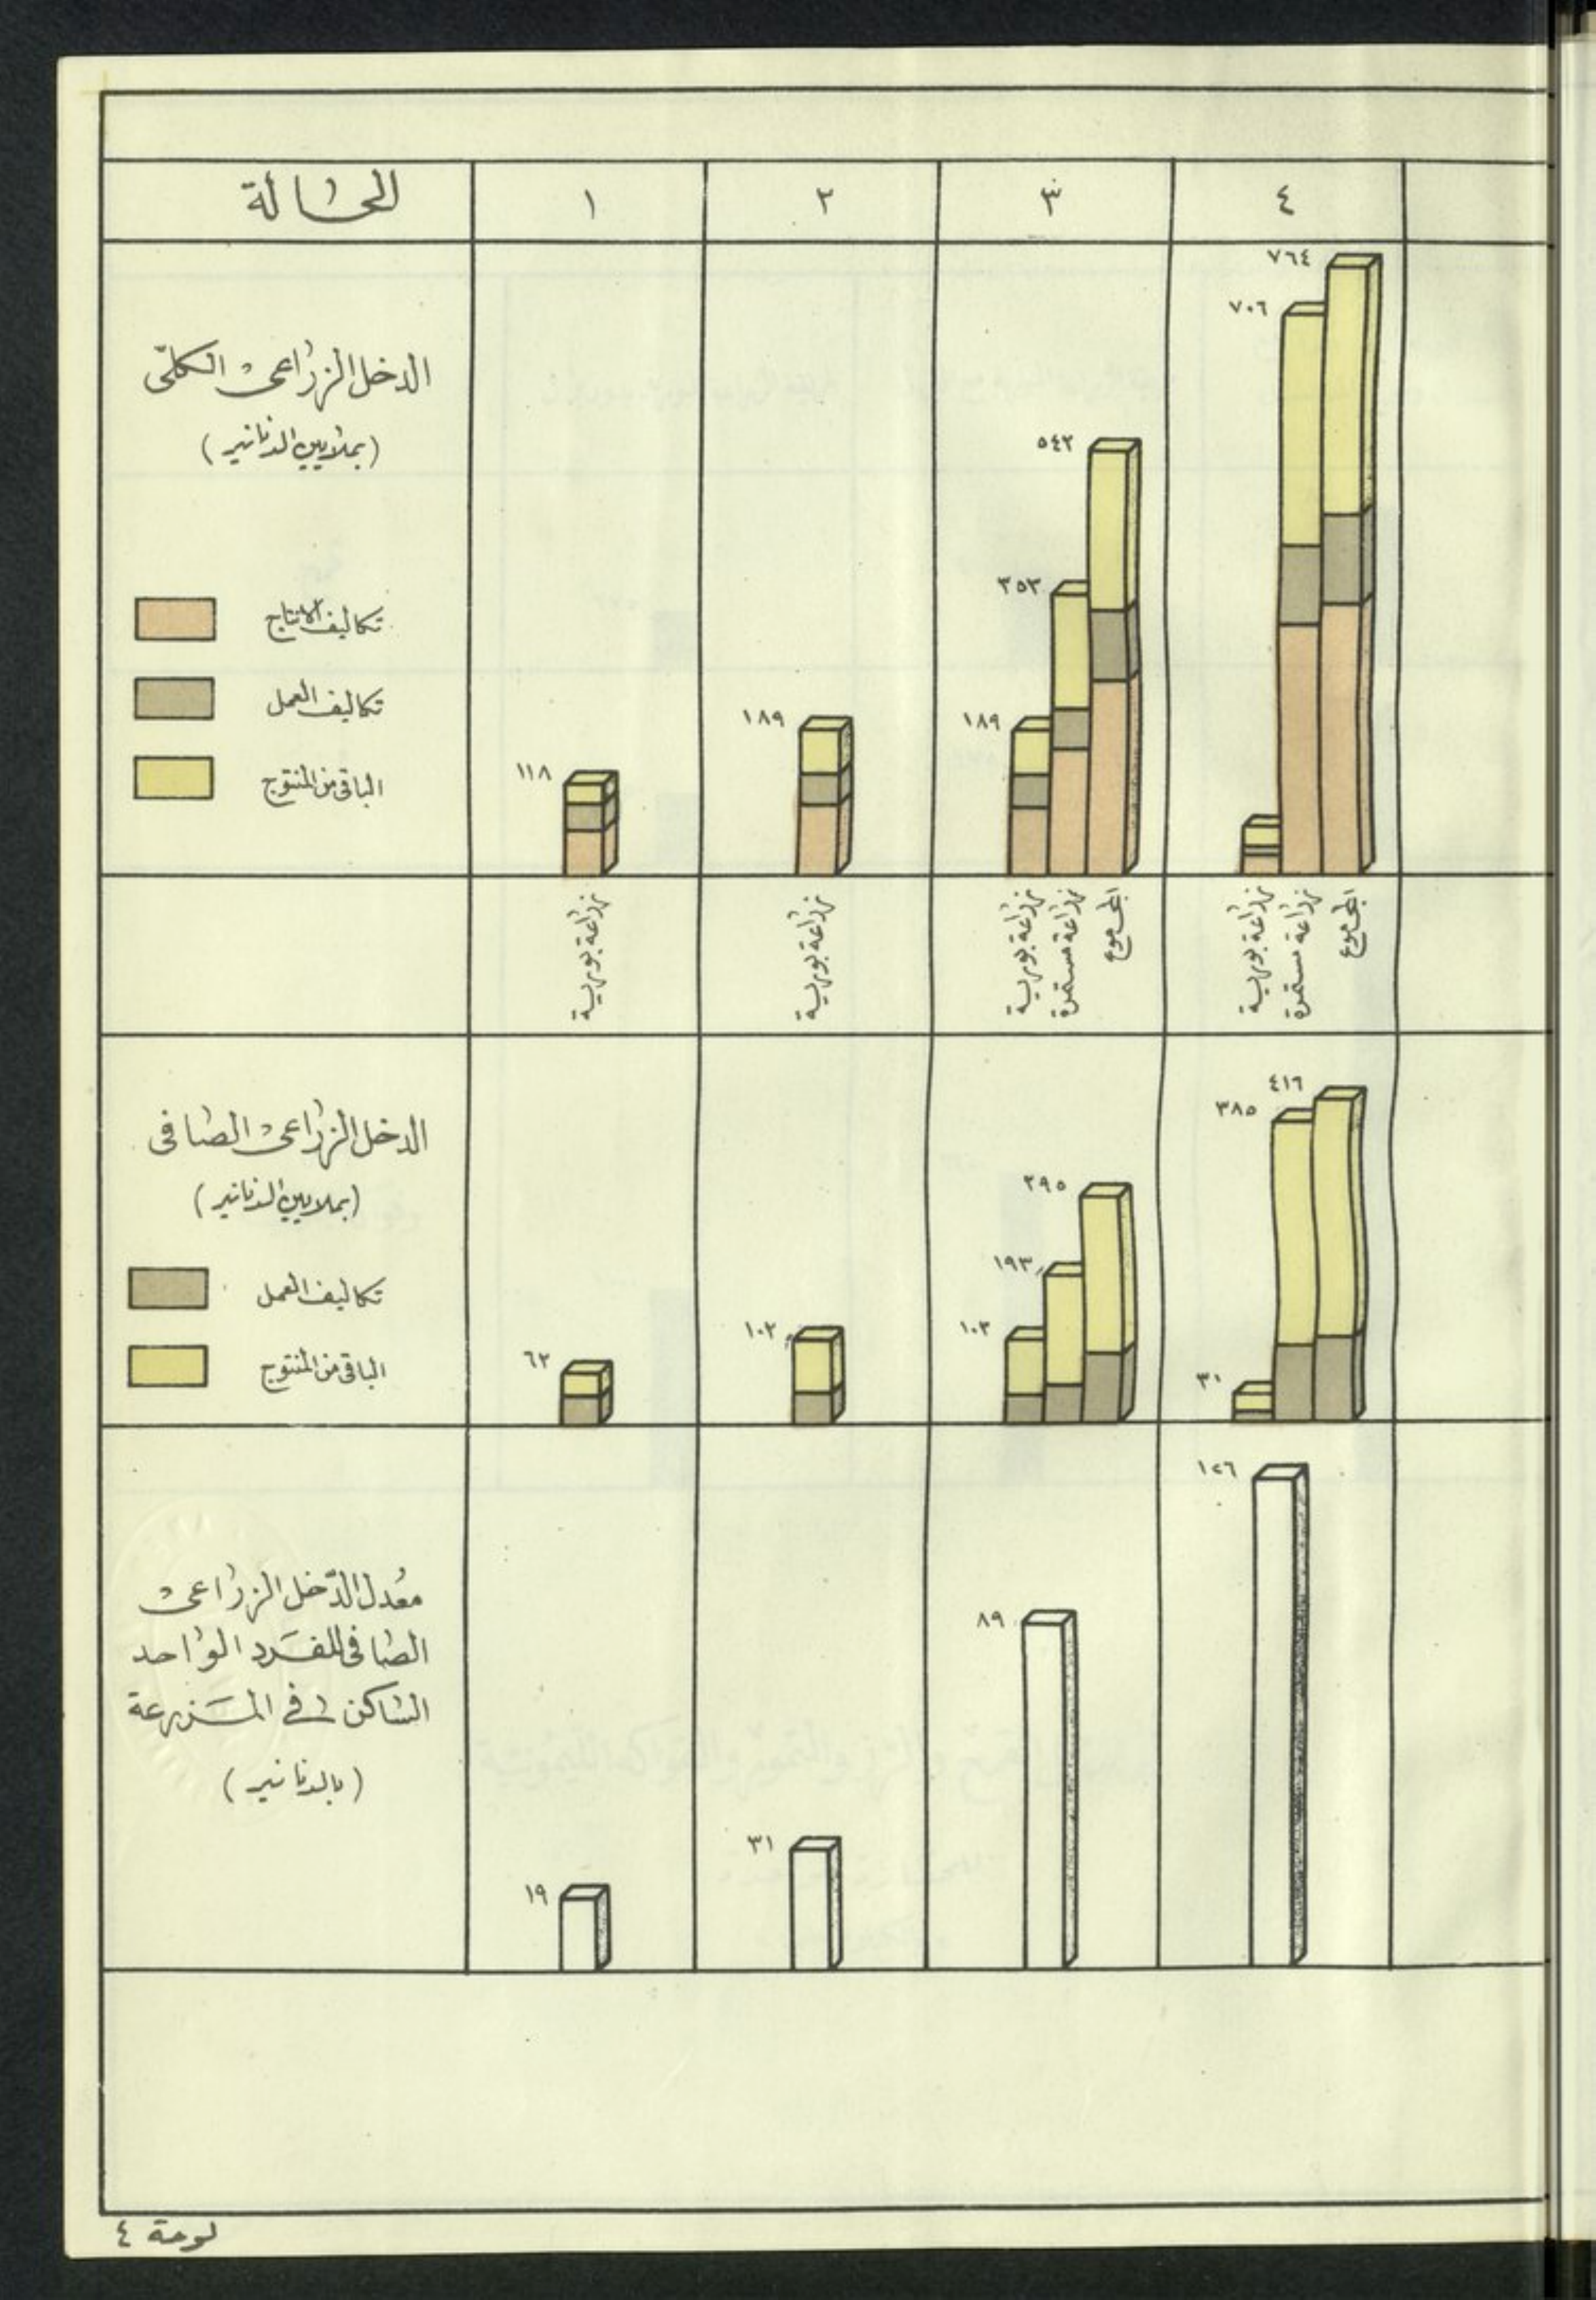 الحالة
١
٢
٣
٤
الدخل الزراعي الكلّي
(بملايين الدنانير)
تكاليف الانتاج
تكاليف العمل
الباقي من المنتوج
١١٨
١٨٩
١٨٩
٣٥٣
٥٤٢
٧٠٦
٧٦٤
زراعة بورية
زراعة بورية
زراعة بورية
زراعة مستمرة
المجموع
زراعة بورية
زراعة مستمرة
المجموع
الدخل الزراعي الصافي
(بملايين الدنانير)
تكاليف العمل
الباقي من المنتوج
٦٢
١٠٢
١٠٢
١٩٣
٢٩٥
٣١
٣٨٥
٤١٦
معدل الدّخل الزراعي
الصافي للفرد الواحد
الساكن في المزرعة
(بالدنانير)
١٩
٣١
٨٩
١٢٦
لوحة ٤